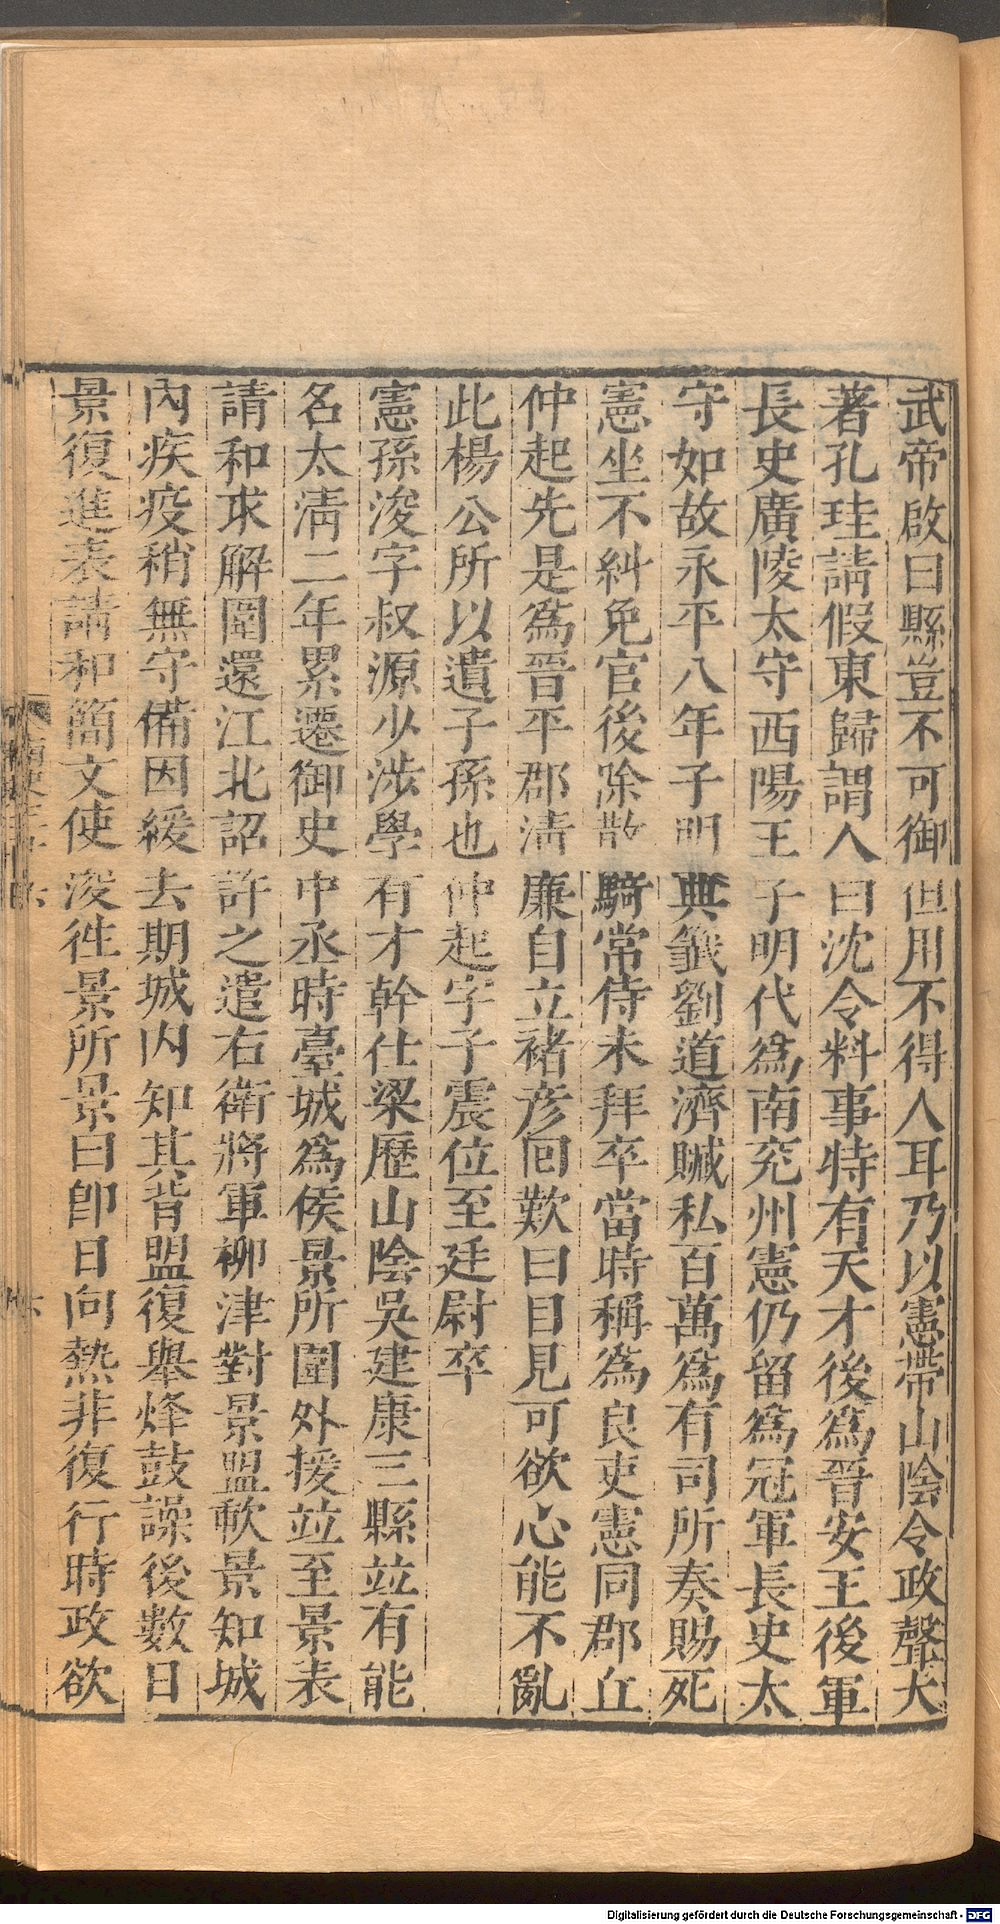 武帝啟曰縣豈不可御但用不得人耳乃以憲帶山陰令政聲大
著孔珪請假東歸謂人曰沈令料事特有天才後爲晉安王後軍
長史廣陵太守西陽王子明代爲南兗州憲仍留爲冠軍長史太
守如故永平八年子明典籤劉道濟贓私百萬爲有司所奏賜死
憲坐不糾免官後除散騎常侍未拜卒當時稱爲良吏憲同郡丘
仲起先是爲晉平郡清廉自立褚彦回歎曰目見可欲心能不亂
此楊公所以遺子孫也仲起字子震位至廷尉卒
憲孫浚字叔源少涉學有才幹仕梁歷山陰吳建康三縣竝有能
名太清二年累遷御史中丞時臺城爲侯景所圍外援竝至景表
請和求解圍還江北詔許之遣右衛將軍柳津對景盟歃景知城
內疾疫稍無守備因緩去期城内知其背盟復舉烽鼓譟後數日
景復進表請和簡文使浚徃景所景曰卽日向熱非復行時政欲
Digitalisierung gefördert durch die Deutsche Forschungsgemeinschaft - DFG